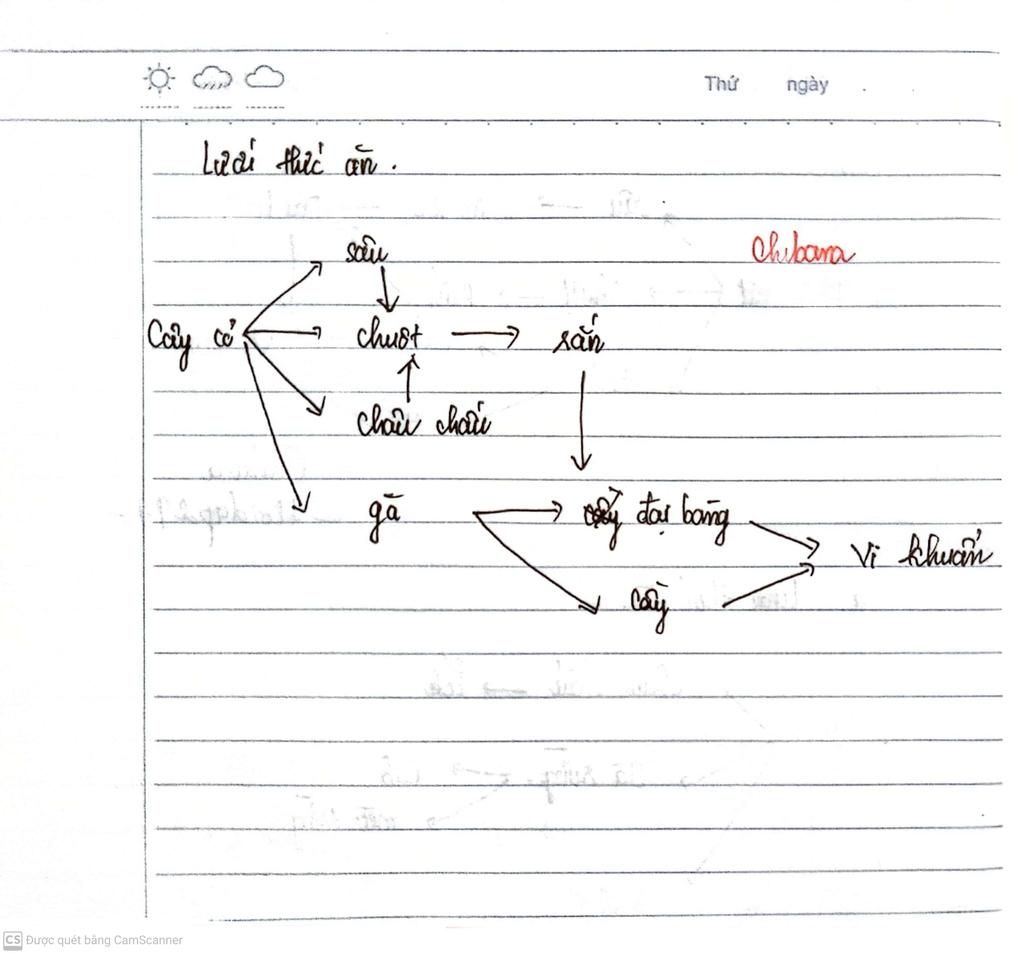 Thứ ngày
Lưới thức ăn.
sâu
Chibana
Cây cỏ chuột rắn
châu chấu
gà đại bàng
vi khuẩn
cầy
CS Được quét bằng CamScanner